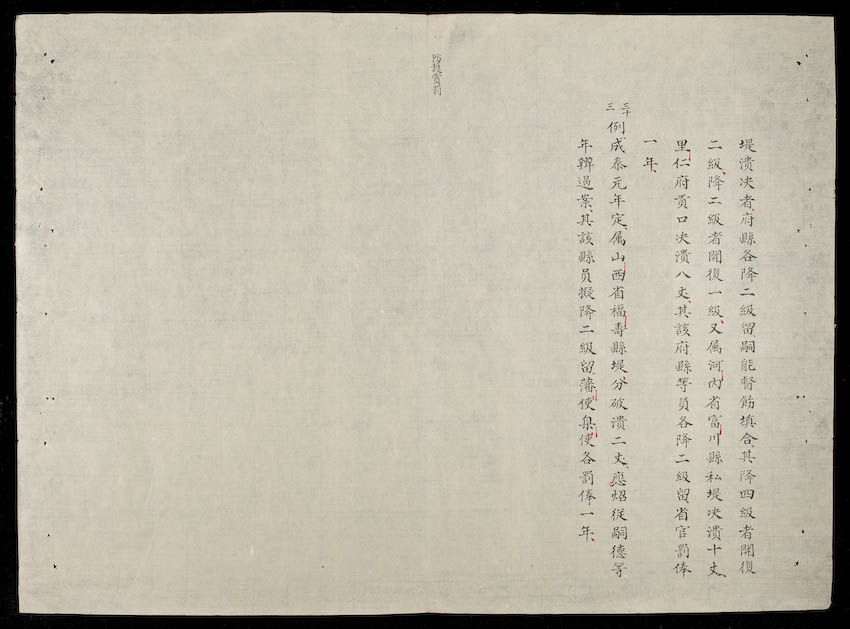 堤潰决者、府縣各降二級留、嗣能督飭填合、其降四級者開復
二級、降二級者開復一級、又属河内省富川縣私堤决潰十丈、
里仁府貢口决潰八丈、其該府縣等員各降二級留、省官罰俸
一年、
三十三
例、成泰元年定、属山西省福壽縣堤、分破潰二丈、應炤從嗣德等
年辨過案、其該縣員擬降二級留、藩使臬使各罰俸一年、
防堤賞罰